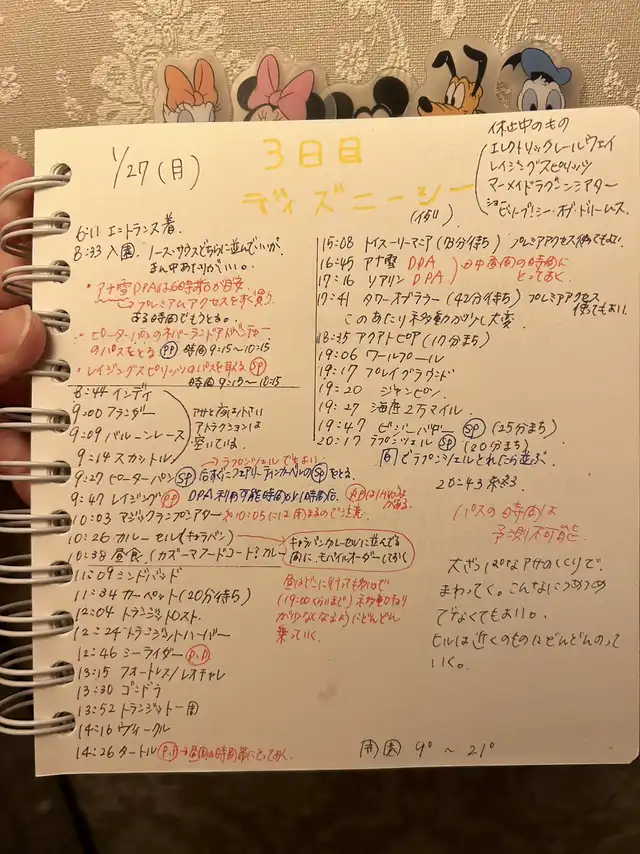 1/27(月)
3日目
ディズニーシー
休止中のもの
エレクトリックレールウェイ
レイジングスピリッツ
マーメイドラグーンシアター
ショー
ビリーヴ!シー・オブ・ドリームス
6:11 エントランス着.
8:33 入園. ノース・サウスどちらに並んでいいが
まん中あたりがいい。
・アナ雪DPAは60時
プレミアムアクセスをすぐ買う
ある時間でもうとる。
・ピーターパンのネバーランドアドベンチャー
のパスをとる PP 時間9:15~10:15
・レイジングスピリッツのパスを取る SP
時間9:15~10:15
8:44 インディ
9:00 フランダー
9:09 バルーンレース
9:14 スカットル
アサと夜は小さい
アトラクションは
空いている.
→ラプンツェルでもよい
9:27 ピーターパン SP 後すぐにフェアリーティンカーベルのSPをとる。
9:47 レイジング PP DPA利用可能時間の1時間後.
10:03 マジックランプシアター ※10:05に1回まるので注意.
10:26 カルーセル(キャラバン)
キャラバンカルーセルに並んでる
間に、モバイルオーダーしておく
10:38 昼食(カズーマフードコート?カレー
11:09 シンドバッド
11:34 カーペット(20分待ち)
12:04 トランジットロスト.
12:24 トランジットハーバー
12:46 シーライダー P.P
13:15 フォートレス/レオチャレ
13:30 ゴンドラ
13:52 トランジット一周
14:16 ヴィークル
14:26 タートル P.P →昼間の時間帯にとっておく.
昼はどこに行っても多いので
(19:00くらいまで)ネ多動なり
が少なくなるようにどんどん
乗っていく.
15:08 トイストーリーマニア(70分待ち) プレミアアクセス使ってもよい.
16:45 アナ雪 DPA
17:16 ソアリン DPA
日中昼間の時間に
とっておく
17:41 タワーオブテラー(42分待ち) プレミアアクセス
使ってもよい.
このあたりネ多動が少し大変
18:35 アクアトピア(17分まち)
19:06 ワールプール
19:17 プレイグラウンド
19:20 ジャンピン
19:27 海底2万マイル.
19:47 ビジーバギー SP (25分まち)
20:17 ラプンツェル SP (20分まち)
間でラプンツェルとれたら並ぶ.
20:43
パスの時間は
予測不可能
大ざっぱなアサのくくりで、
まわってく。こんなにつめつめ
でなくてもよい。
ヒルは近くのものにどんどんのって
いく。
開園 9°~21°